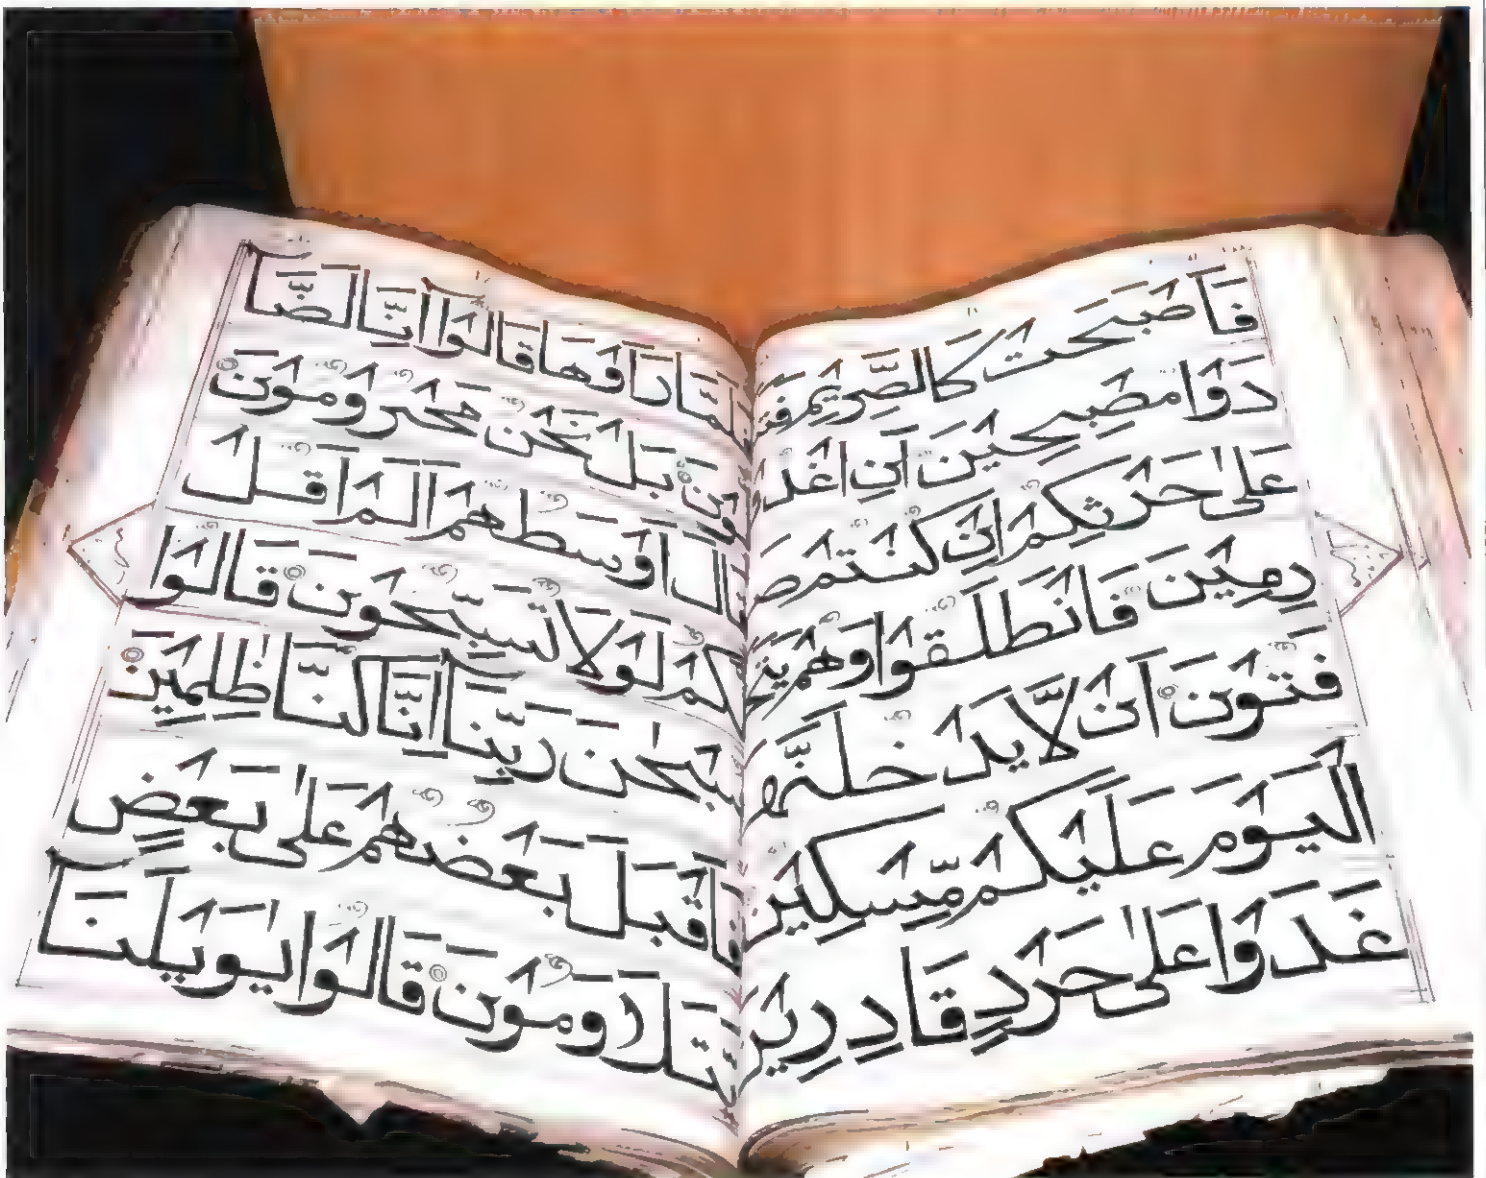 فَاَصْبَحَتْ كَالصَّرِيْمِ فَتَ
دَوْا مُصْبِحِيْنَ اَنِ اغْدُ
عَلٰى حَرْثِكُمْ اِنْ كُنْتُمْ صَ
رِمِيْنَ فَانْطَلَقُوْا وَهُمْ يَتَخَ
فَتُوْنَ اَنْ لَّا يَدْخُلَنَّهَ
الْيَوْمَ عَلَيْكُمْ مِّسْكِيْنٌ
غَدَوْا عَلٰى حَرْدٍ قَادِرِيْنَ
فَلَمَّا رَاَوْهَا قَالُوْا اِنَّا لَضَا
لُّوْنَ بَلْ نَحْنُ مَحْرُوْمُوْنَ
قَالَ اَوْسَطُهُمْ اَلَمْ اَقُلْ
لَّكُمْ لَوْلَا تُسَبِّحُوْنَ قَالُوْا
سُبْحٰنَ رَبِّنَا اِنَّا كُنَّا ظٰلِمِيْنَ
فَاَقْبَلَ بَعْضُهُمْ عَلٰى بَعْضٍ
يَّتَلَاوَمُوْنَ قَالُوْا يٰوَيْلَنَا